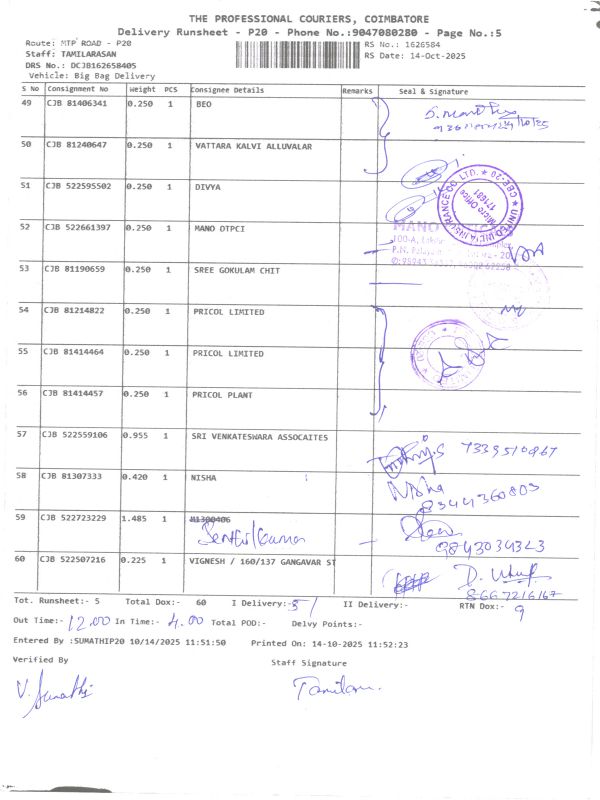 THE PROFESSIONAL COURIERS, COIMBATORE
Delivery Runsheet - P20 - Phone No.:9047080280 - Page No.:5
Route: MTP ROAD - P20
RS No.: 1626584
Staff: TAMILARASAN
RS Date: 14-Oct-2025
DRS No.: DCJB162658405
Vehicle: Big Bag Delivery
S No Consignment No Weight PCS Consignee Details Remarks Seal & Signature
49 CJB 81406341 0.250 1 BEO
50 CJB 81240647 0.250 1 VATTARA KALVI ALLUVALAR
51 CJB 522595502 0.250 1 DIVYA
UNITED INDIA INSURANCE CO. LTD.
Micro Office
171681
52 CJB 522661397 0.250 1 MANO OTPCI
53 CJB 81190659 0.250 1 SREE GOKULAM CHIT
54 CJB 81214822 0.250 1 PRICOL LIMITED
55 CJB 81414464 0.250 1 PRICOL LIMITED
56 CJB 81414457 0.250 1 PRICOL PLANT
57 CJB 522559106 0.955 1 SRI VENKATESWARA ASSOCAITES
7339510867
58 CJB 81307333 0.420 1 NISHA
Nisha
8344360803
59 CJB 522723229 1.485 1 M1300406
Senthil Kumar
9843034323
60 CJB 522507216 0.225 1 VIGNESH / 160/137 GANGAVAR ST
8667216167
Tot. Runsheet:- 5 Total Dox:- 60 I Delivery:- 51 II Delivery:- RTN Dox:- 9
Out Time:- 12.00 In Time:- 4.00 Total POD:- Delvy Points:-
Entered By :SUMATHIP20 10/14/2025 11:51:50 Printed On: 14-10-2025 11:52:23
Verified By Staff Signature
V. Sumathi Tamilan.